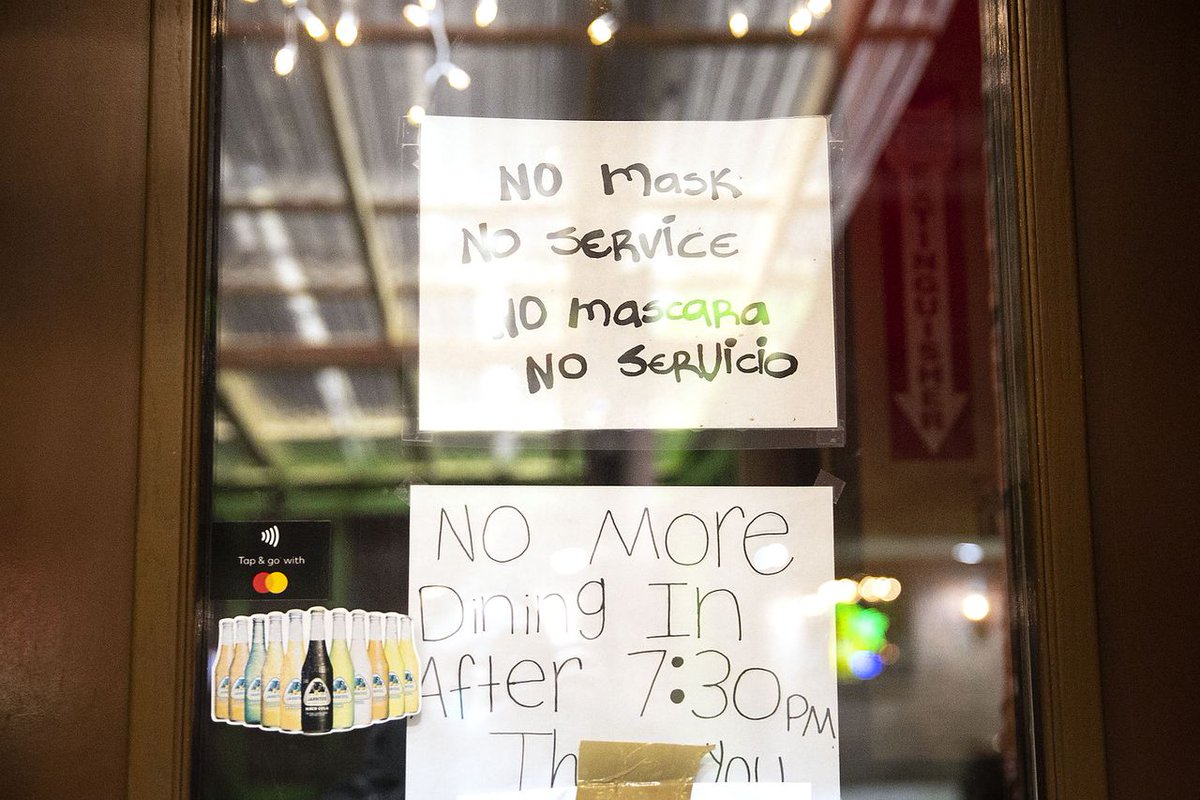 NO Mask
NO SERVICE
NO mascara
NO SERVicio
NO More
Dining In
After 7:30PM
Tap & go with
EXTINGUISHER